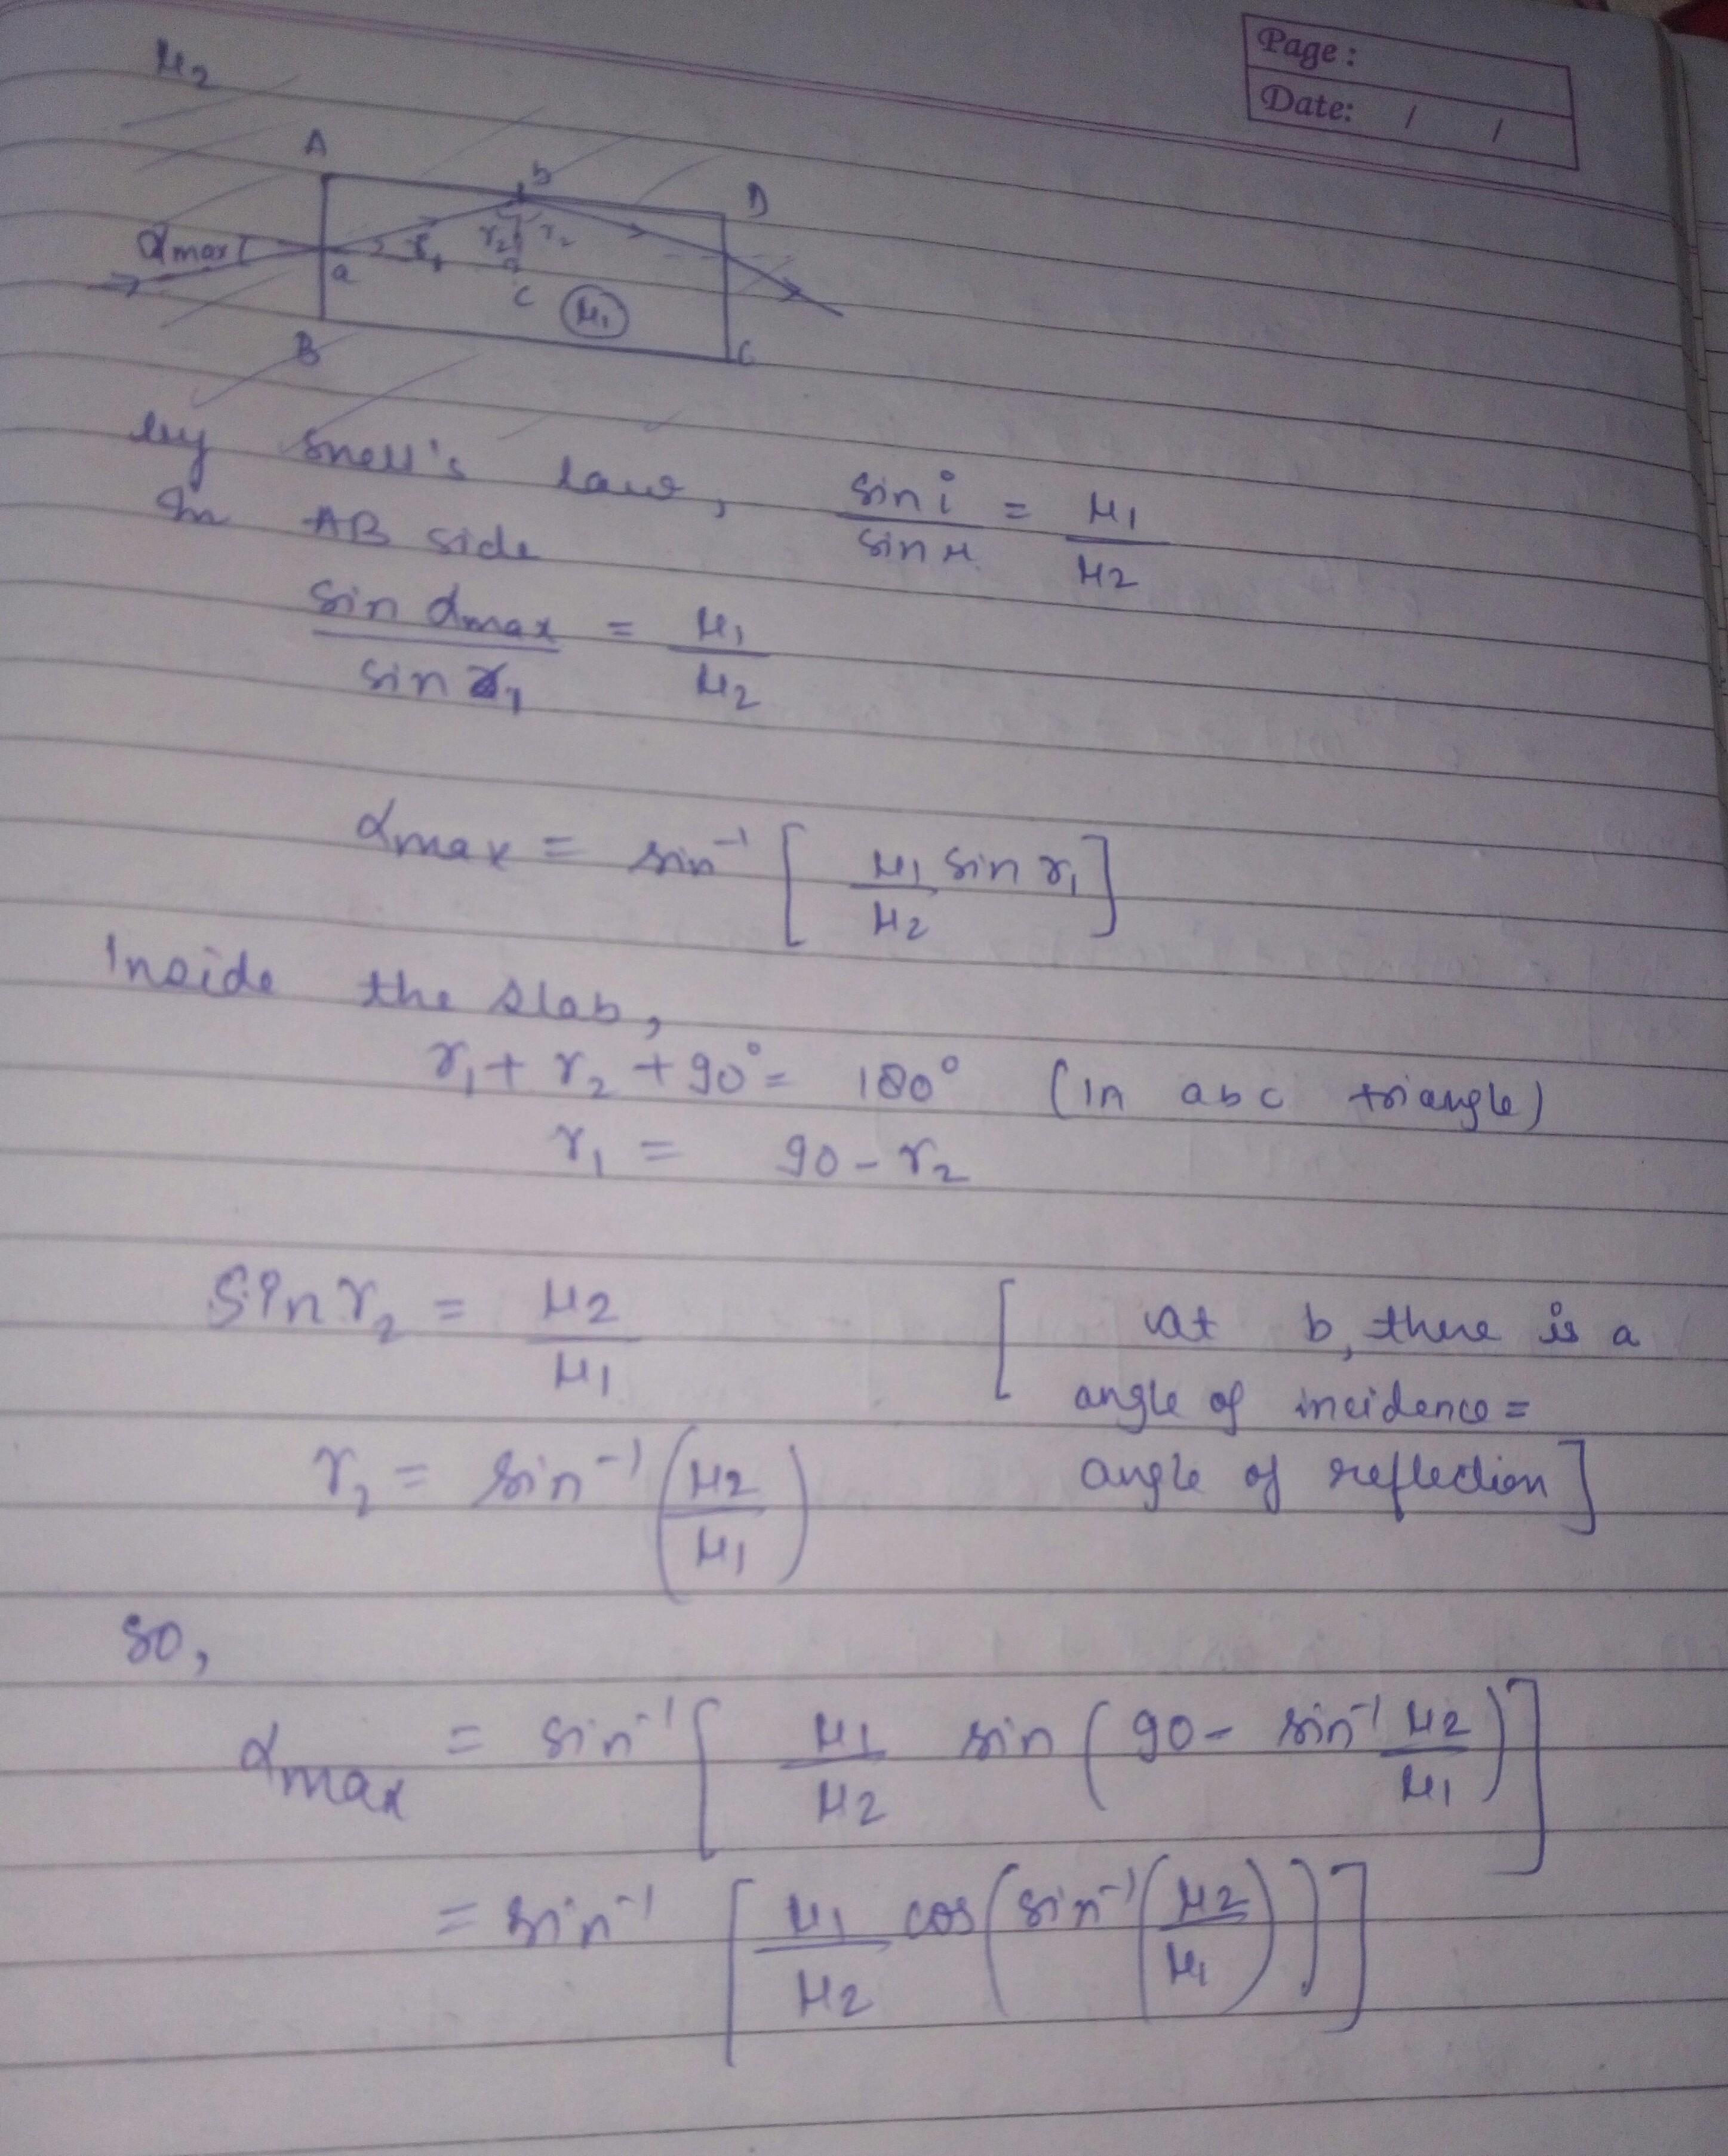 Page:
Date: / /
μ2
A
b
D
αmax
a
r1
r2
r2
c
μ1
B
C
by Snell's law, sin i / sin r = μ1 / μ2
In AB side
sin αmax / sin r1 = μ1 / μ2
αmax = sin⁻¹ [ μ1 / μ2 sin r1 ]
Inside the slab,
r1 + r2 + 90° = 180° (In abc triangle)
r1 = 90 - r2
Sin r2 = μ2 / μ1 [ at b, there is a
angle of incidence =
r2 = sin⁻¹ ( μ2 / μ1 ) angle of reflection ]
So,
αmax = sin⁻¹ [ μ1 / μ2 sin ( 90 - sin⁻¹ μ2 / μ1 ) ]
= sin⁻¹ [ μ1 / μ2 cos ( sin⁻¹ ( μ2 / μ1 ) ) ]